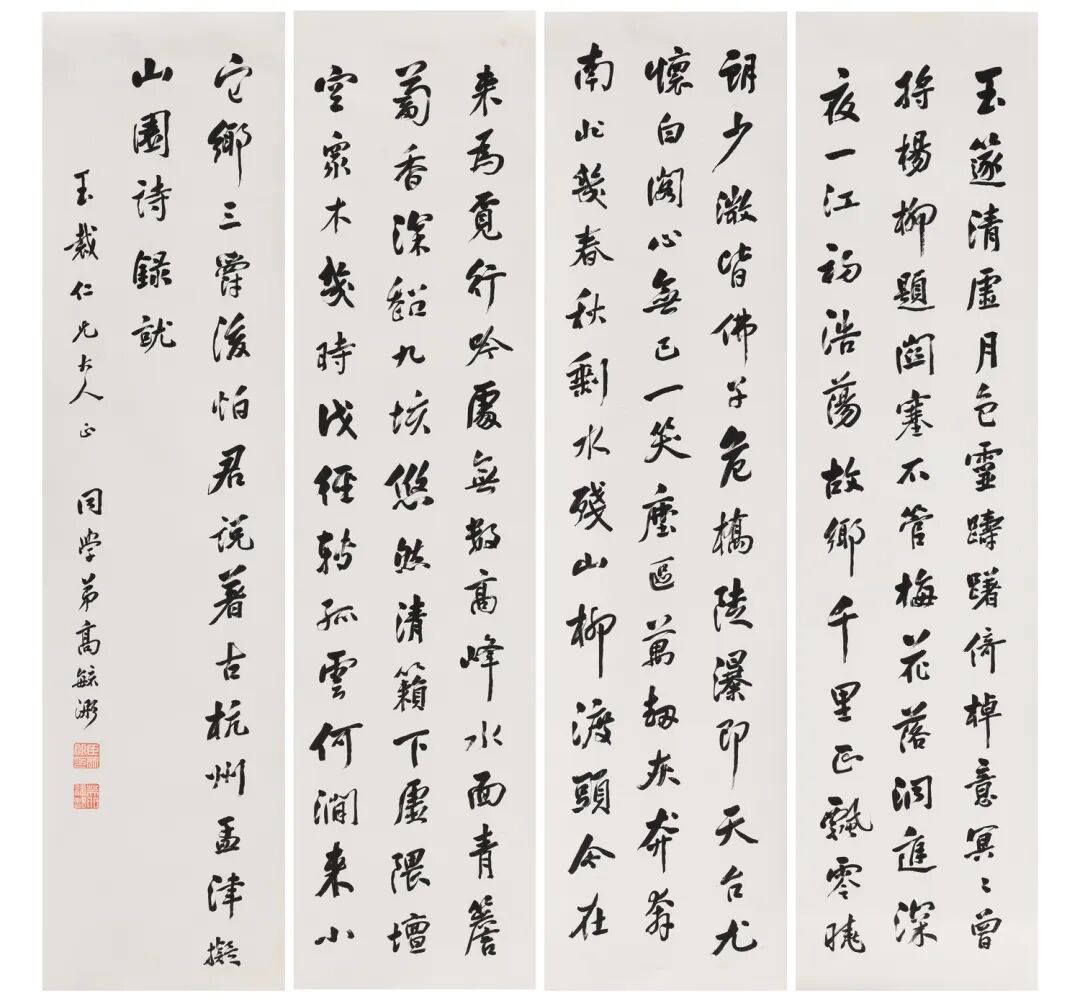 玉篴清虛月色靈躊躇倚棹意冥〻曾
將楊柳題關塞不管梅花落洞庭深
夜一江初浩蕩故鄉千里正飄零曉
少皆佛子危橋陡瀑即天台尤
懷白閣心無已一笑塵區萬劫灰奔奔
南北幾春秋剩水殘山柳渡頭今在
來為覓行吟處無數高峰水面青薝
蔔香深谿九垓悠然清籟下虛隈壇
空眾木幾時伐徑轉孤雲何澗來小
它鄉三爵後怕君說著古杭州孟津擬
山園詩錄就
玉裁仁兄大人正 同學弟高毓浵